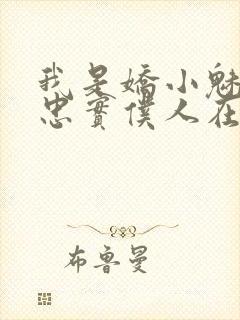 我是嬌小魅
忠實僕人在
布魯曼